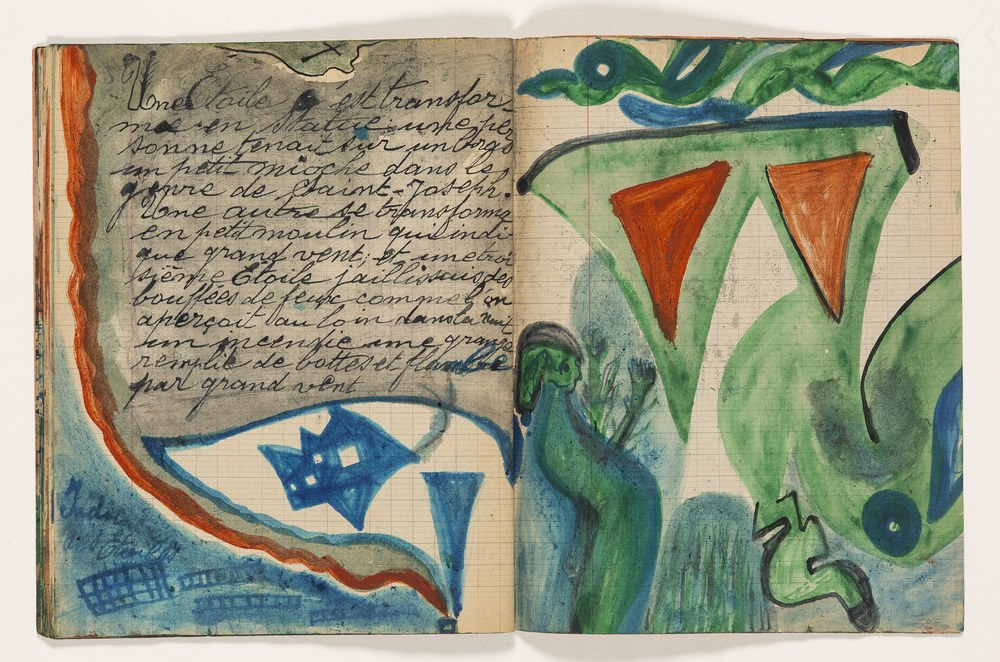 Une Etoile s'est transfor
mée en statue: une per
sonne tenait sur un
un petit mioche dans le
genre de Saint-Joseph.
Une autre se transforma
en petit moulin qui indi
que grand vent; et une troi
sième Etoile jaillissais des
bouffées de feux comme l'on
aperçoit au loin dans la nuit
un incendie une grange
remplie de bottes et flambée
par grand vent